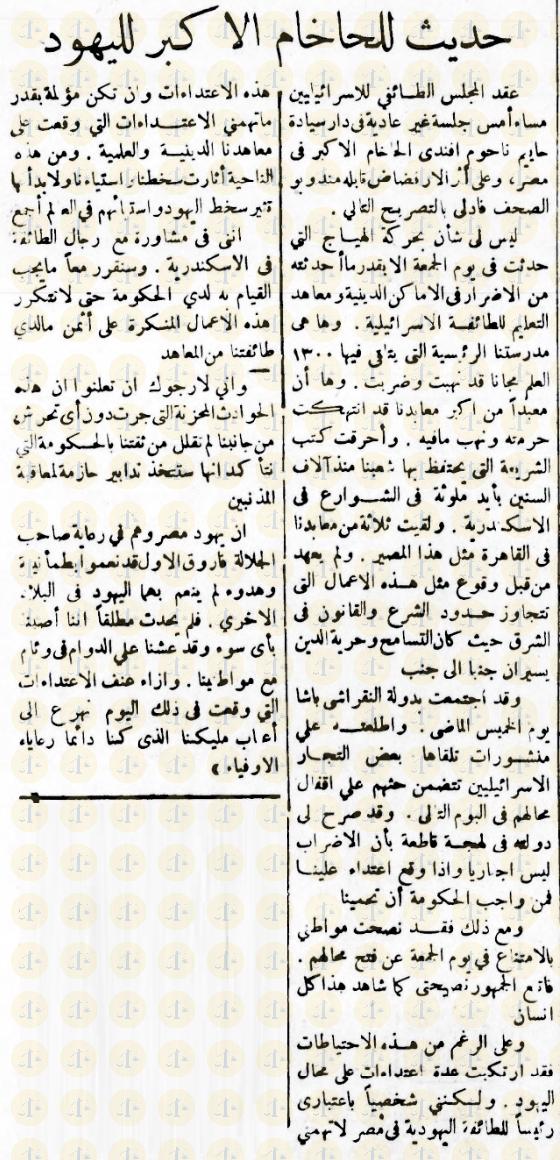 حديث للحاخام الاكبر لليهود
عقد المجلس الطائفي للاسرائيليين
مساء أمس جلسة غير عادية فى دار سيادة
حايم ناحوم افندى الحاخام الاكبر فى
مصر، وعلى أثر الارفضاض قابله مندوبو
الصحف فادلى بالتصريح التالي .
ليس لى شأن بحركة الهياج التي
حدثت فى يوم الجمعة الا بقدر ما أحدثته
من الاضرار فى الاماكن الدينية ومعاهد
التعليم للطائفة الاسرائيلية . وها هى
مدرستنا الرئيسية التى يتلقى فيها ١٣٠٠
العلم مجانا قد نهبت وضربت . وها أن
معبداً من اكبر معابدنا قد انتهكت
حرمته ونهب مافيه . وأحرقت كتب
الشريعة التى يحتفظ بها شعبنا منذ آلاف
السنين بأيد ملوثة فى الشوارع فى
الاسكندرية . ولقيت ثلاثة من معابدنا
فى القاهرة مثل هذا المصير . ولم يعهد
من قبل وقوع مثل هذه الاعمال التى
تتجاوز حدود الشرع والقانون فى
الشرق حيث كان التسامح وحرية الدين
يسيران جنبا الى جنب
وقد اجتمعت بدولة النقراشى باشا
يوم الخميس الماضى . واطلعته علي
منشورات تلقاها بعض التجار
الاسرائيليين تتضمن حثهم علي اقفال
محالهم فى اليوم التالى . وقد صرح لى
دولته فى لهجة قاطعة بأن الاضراب
ليس اجباريا واذا وقع اعتداء علينا
فمن واجب الحكومة أن تحمينا
ومع ذلك فقد نصحت مواطني
بالامتناع في يوم الجمعة عن فتح محالهم .
فاتبع الجمهور نصيحتى كما شاهد هذا كل
انسان
وعلى الرغم من هذه الاحتياطات
فقد ارتكبت عدة اعتداءات على محال
اليهود . ولكنني شخصياً باعتبارى
رئيساً للطائفة اليهودية فى مصر لاتهمني
هذه الاعتداءات وان تكن مؤلمة بقدر
ماتهمني الاعتداءات التي وقعت على
معاهدنا الدينية والعلمية . ومن هذه
الناحية أثارت سخطنا واستياءنا ولابد أنها
تثير سخط اليهود واستيائهم في العالم أجمع
اننى فى مشاورة مع رجال الطائفة
فى الاسكندرية . وسنقرر معاً مايجب
القيام به لدي الحكومة حتى لاتتكرر
هذه الاعمال المنكرة على أثمن مالدي
طائفتنا من المعاهد
وانى لارجوك ان تعلنوا ان هذه
الحوادث المحزنة التى جرت دون أى تحرش
من جانبنا لم تقلل من ثقتنا بالحكومة التي
نتأكد انها ستتخذ تدابير حازمة لمعاقبة
المذنبين
ان يهود مصر وهم فى رعاية صاحب
الجلالة فاروق الاول قد نعموا بطمأنينة
وهدوء لم ينعم بهما اليهود فى البلاد
الاخري . فلم يحدث مطلقاً اننا أصبنا
بأى سوء وقد عشنا علي الدوام فى وئام
مع مواطنينا . وازاء عنف الاعتداءات
التي وقعت فى ذلك اليوم نهرع الى
أعتاب مليكنا الذى كنا دائما رعاياه
الاوفياء »